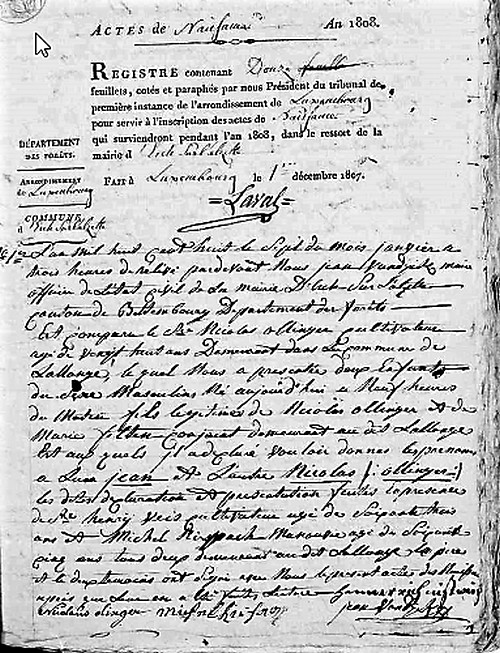 ACTES de Naissance An 1808.
REGISTRE contenant Douze feuillets
feuillets, cotés et paraphés par nous Président du tribunal de
première instance de l'arrondissement de Luxembourg
pour servir à l'inscription des actes de Naissance
qui surviendront pendant l'an 1808, dans le ressort de la
mairie d'Esch sur l'alzette
FAIT à Luxembourg le 1er décembre 1807.
=Laval=
DÉPARTEMENT
DES FORÊTS.
ARRONDISSEMENT
de Luxembourg
COMMUNE
d'Esch sur l'alzette
L'an mil huit cent huit le sept du mois janvier a
trois heures de relevé pardevant Nous jean maire
officier de L'état civil de La mairie D'Esch Sur l'alzette
canton de Bettembourg Departement des forêts
Est comparu le Sr Nicolas ollinger cultivateur
agé de vengt huit ans Demeurant dans La commune de
Lallange, le quel Nous a presentée deux Enfants
du Sexe Masculins Né aujourd'hui a Neuf heures
du Matin fils legitimes de Nicolas ollinger et de
Marie conjoint demeurant au dit Lallange
Est aux quels il a declaré vouloir donner les prenoms
a L'un jean et L'autre Nicolas (: ollinger :)
les dites declaration et presentation faites en presence
de Sr henry cultivateur agé de Soixante trois
ans et Michel Manouvre agé de Soixante
cinq ans tous deux demeurant au dit Lallange le pere
et le deux temoins ont Signé avec Nous le present acte de Naissance
après que Leur en a été faite lecture
Nicolaus olinger